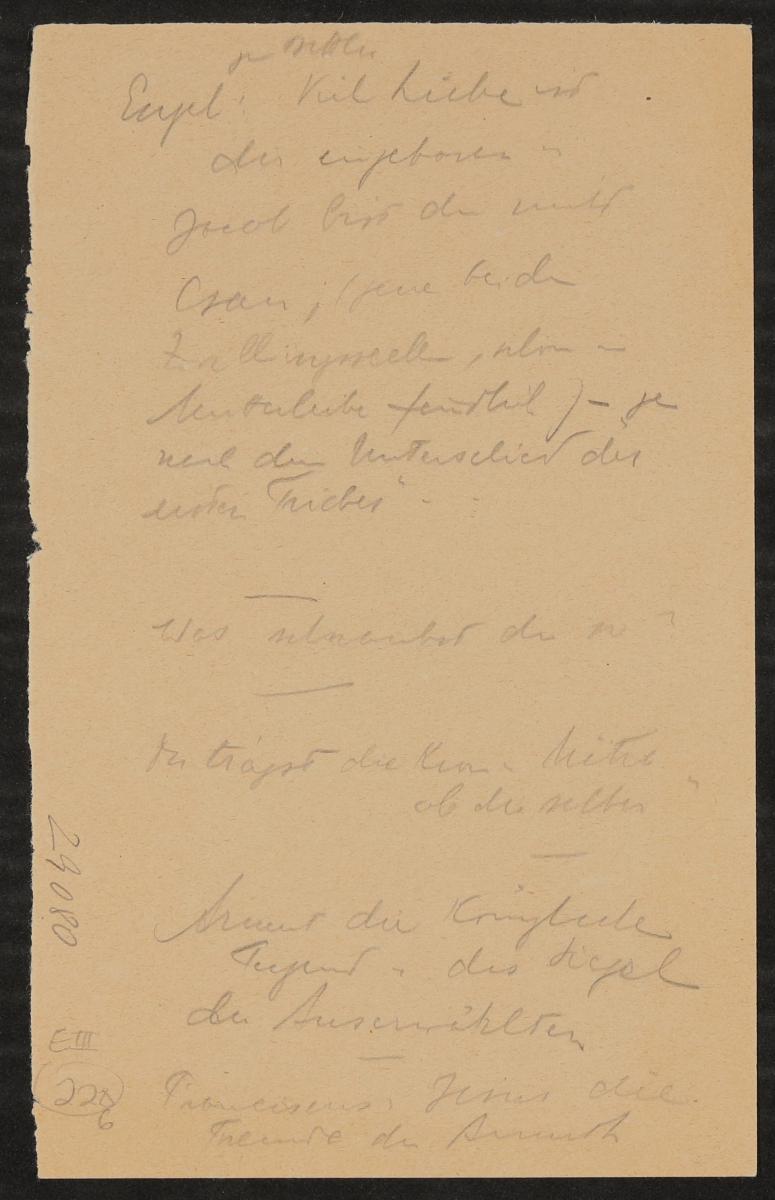 zu
Engel: Viel Liebe ist
dir eingeboren
Jacob bist du nicht
Esau; (jene beiden
Zwillingsseelen, schon in
Mutterleibe feindlich) – je
nach dem Unterschied des
ersten Triebes"
Was schnaubst du so?
Du trägst die Kron u. Mitra
ob dir selber"
Armut die Königliche
Tugend u. das Siegel
der Auserwählten
Franciscus: Jesus die
Freude der Armuth
29080
EIII
22
6